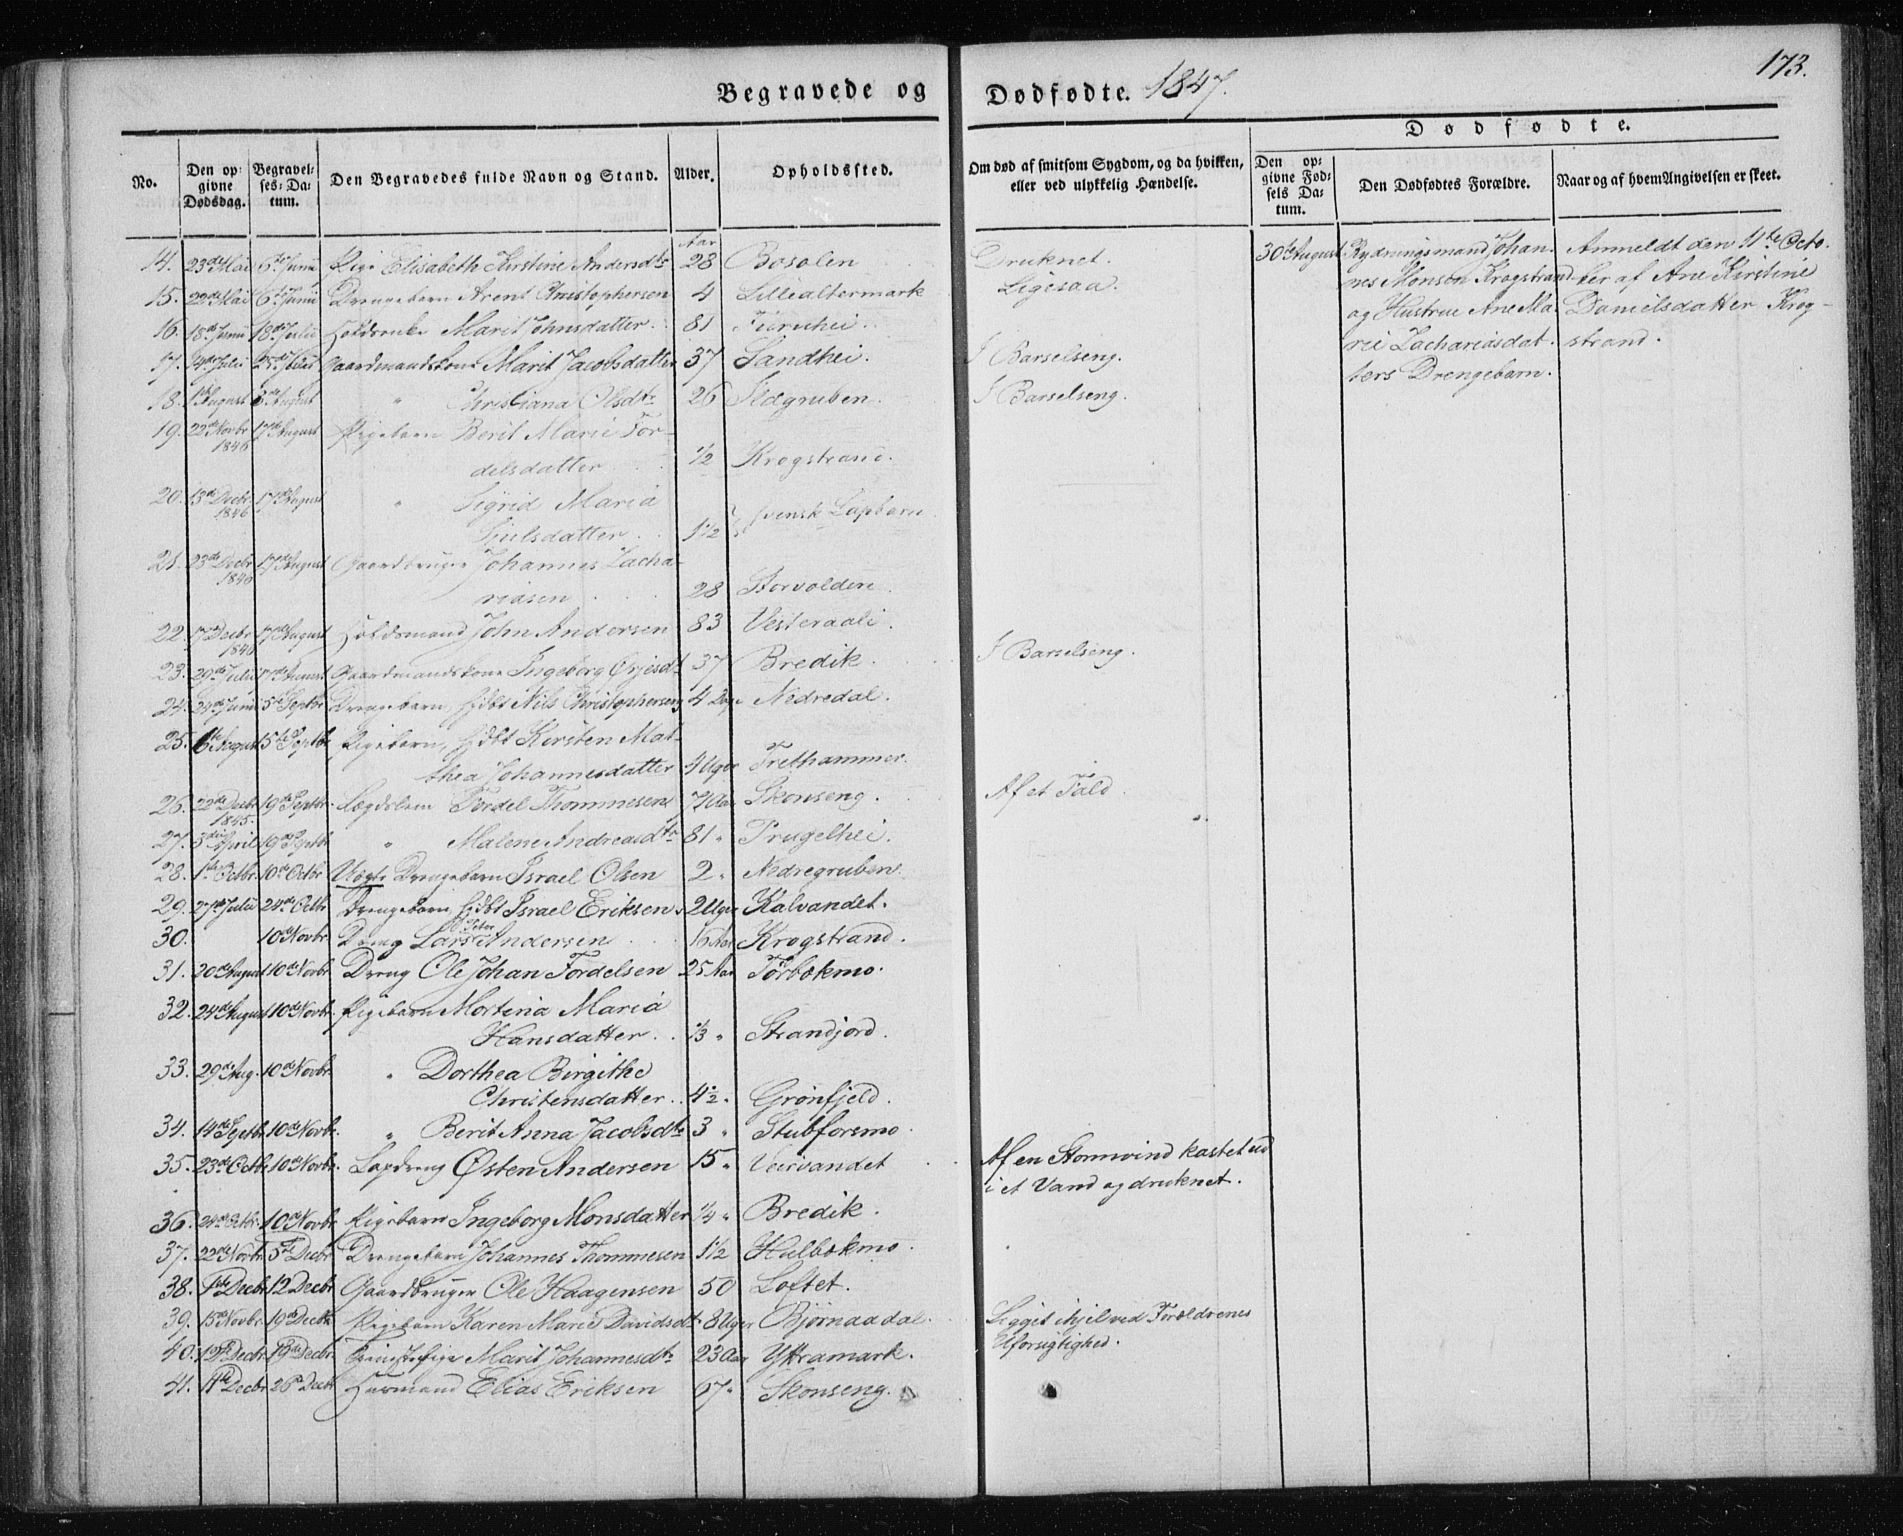 173.
Begravede og Dødfødte. 1847.
Dødfødte.
No.
Den opgivne Dødsdag.
Begravelses-Datum.
Den Begravedes fulde Navn og Stand.
Alder.
Opholdssted.
Om død af smitsom Sygdom, og da hvilken, eller ved ulykkelig Hændelse.
Den opgivne Fødsels Datum.
Den Dødfødtes Forældre.
Naar og af hvem Angivelsen er skeet.
Aar
14. 23de Mai 6te Junii Pige Elisabeth Kirstine Andersdtr 28 Bosolen Druknet.
15. 22de Mai 6te Junii Drengebarn Arent Christophersen 4 Lillealtermark Ligesaa.
16. 18de Junii 18de Julii Marit Johnsdatter. 81 Furuhei.
17. 14de Julii 25de Julii Gaardmandskone Marit Jacobsdatter 37 Sandhei. I Barselseng.
18. 1ste August 8de August " Christiana Olsdtr 26 Ildgruben. I Barselseng.
19. 22de Novbr 1846 17de August Pigebarn Berit Marie Tor-
delsdatter 1/2 Krogstrand.
20. 13de Decbr 1846 17de August " Sigrid Maria
Sjulsdatter 1 1/2 svensk Lapbarn
21. 23de Decbr 1846 17de August Gaardbruger Johannes Zacha-
riasen 28 Storvolden
22. 17de Decbr 1846 17de August Holdsmand John Andersen 83 Vesteraali.
23. 29de Julii 17de August Gaardmandskone Ingeborg Ørjesdtr 37 Bredik. I Barselseng.
24. 24de Junii 5te Septbr Drengebarn, Hdbt Nils Christophersen 4 Dage Nedredal.
25. 6te August 5te Septbr Pigebarn, Hdbt Kirsten Mat-
thea Johannesdatter 4 Uger Trethammer.
26. 22de Decbr 1845. 19de Septbr. Lægdslem Tordel Thommesen 71 Aar Skonseng. Af et Fald.
27. 3die April 19de Septbr " Malene Andreasdtr 81 " Prugelhei.
28. 1ste Octbr. 10de Octbr. Uægte Drengebarn Israel Olsen 2 " Nedregruben.
29. 27de Julii 24de Octbr Drengebarn Hdbt Israel Eriksen 2 Uger Kalvandet.
30. 10de Novbr Dreng Lars Peter Andersen 16 Aar Krogstrand.
31. 20de August 10de Novbr. Dreng Ole Johan Tordelsen 25 Aar Tørbekmo.
32. 24de August 10de Novbr. Pigebarn Mortina Maria
Hansdatter 1/3 " Strandjord.
33. 29de Aug. 10de Novbr. " Dorthea Birgithe
Christensdatter 4 1/2 " Grønfjeld.
34. 14de Septbr. 10de Novbr. " Berit Anna Jacobsdtr 3 " Stubforsmo.
35. 23de Octbr 10de Novbr. Lapdreng Østen Andersen 15 " Veirvandet Af en Stormvind kastet ud
i et Vand og druknet.
36. 24de Octbr. 10de Novbr. Pigebarn Ingeborg Monsdatter 1/4 " Bredik.
37. 22de Novbr. 5te Decbr Drengebarn Johannes Thommesen 1 1/2 Hulbekmo.
38. 1ste Decbr 12 Decbr Gaardbruger Ole Haagensen 50 Loftet.
39. 15de Novbr. 19de Decbr Pigebarn Karen Marie Davidsdtr 3 Uger Bjørnaadal. Ligget ihjel ved Forældrenes
Uforsigtighed.
40. 12te Decbr. 19de Decbr. Marit Johannesdtr 23 Aar Yttramark.
41. 11te Decbr 26de Decbr Huusmand Elias Eriksen 67 " Skonseng.
30te August Rydningsmand Johan-
nes Monsen Krogstrand
og Hustrue Ane Ma-
rie Zachariasdat-
ters Drengebarn.
Anmeldt den 11te Octo-
ber af Ane Kirstine
Danielsdatter Krog-
strand.